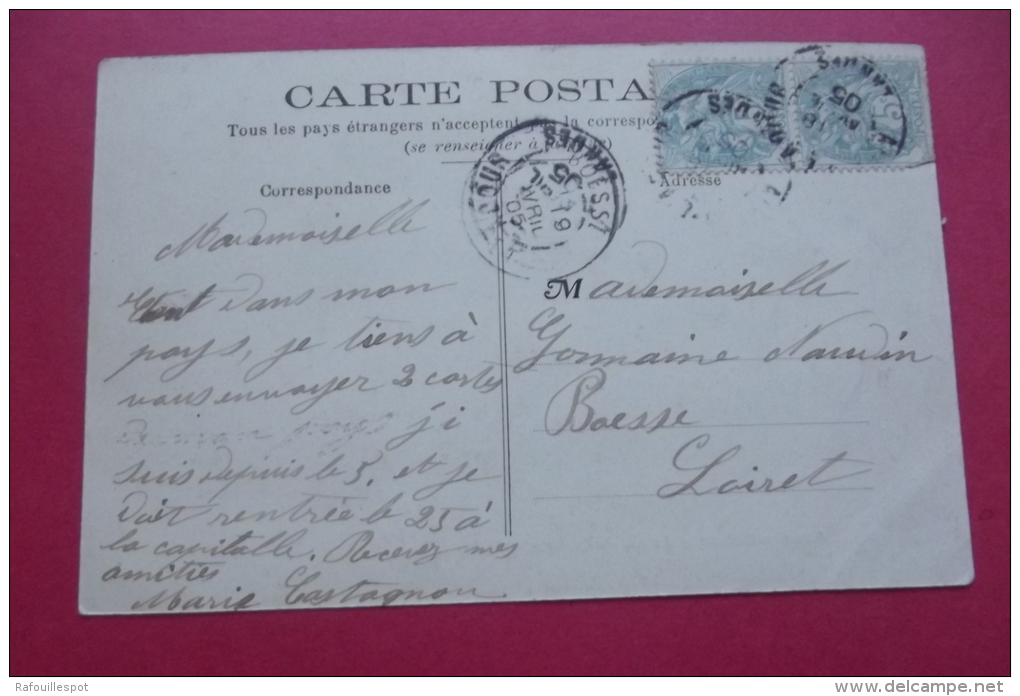 CARTE POSTA
Tous les pays étrangers n'acceptent pas la correspo
(se renseigner à
Correspondance
Adresse
Mademoiselle
Etant dans mon
pays, je tiens à
vous envoyer 2 cartes
de mon pays j'i
suis depuis le 5, et je
doit rentrée le 25 à
la capitalle. Recevez mes
amitiés
Marie Castagnon
Mademoiselle
Germaine Naudin
Boesse
Loiret
LANDES
05
19
AVRIL
05
Rafouillespot
www.delcampe.net